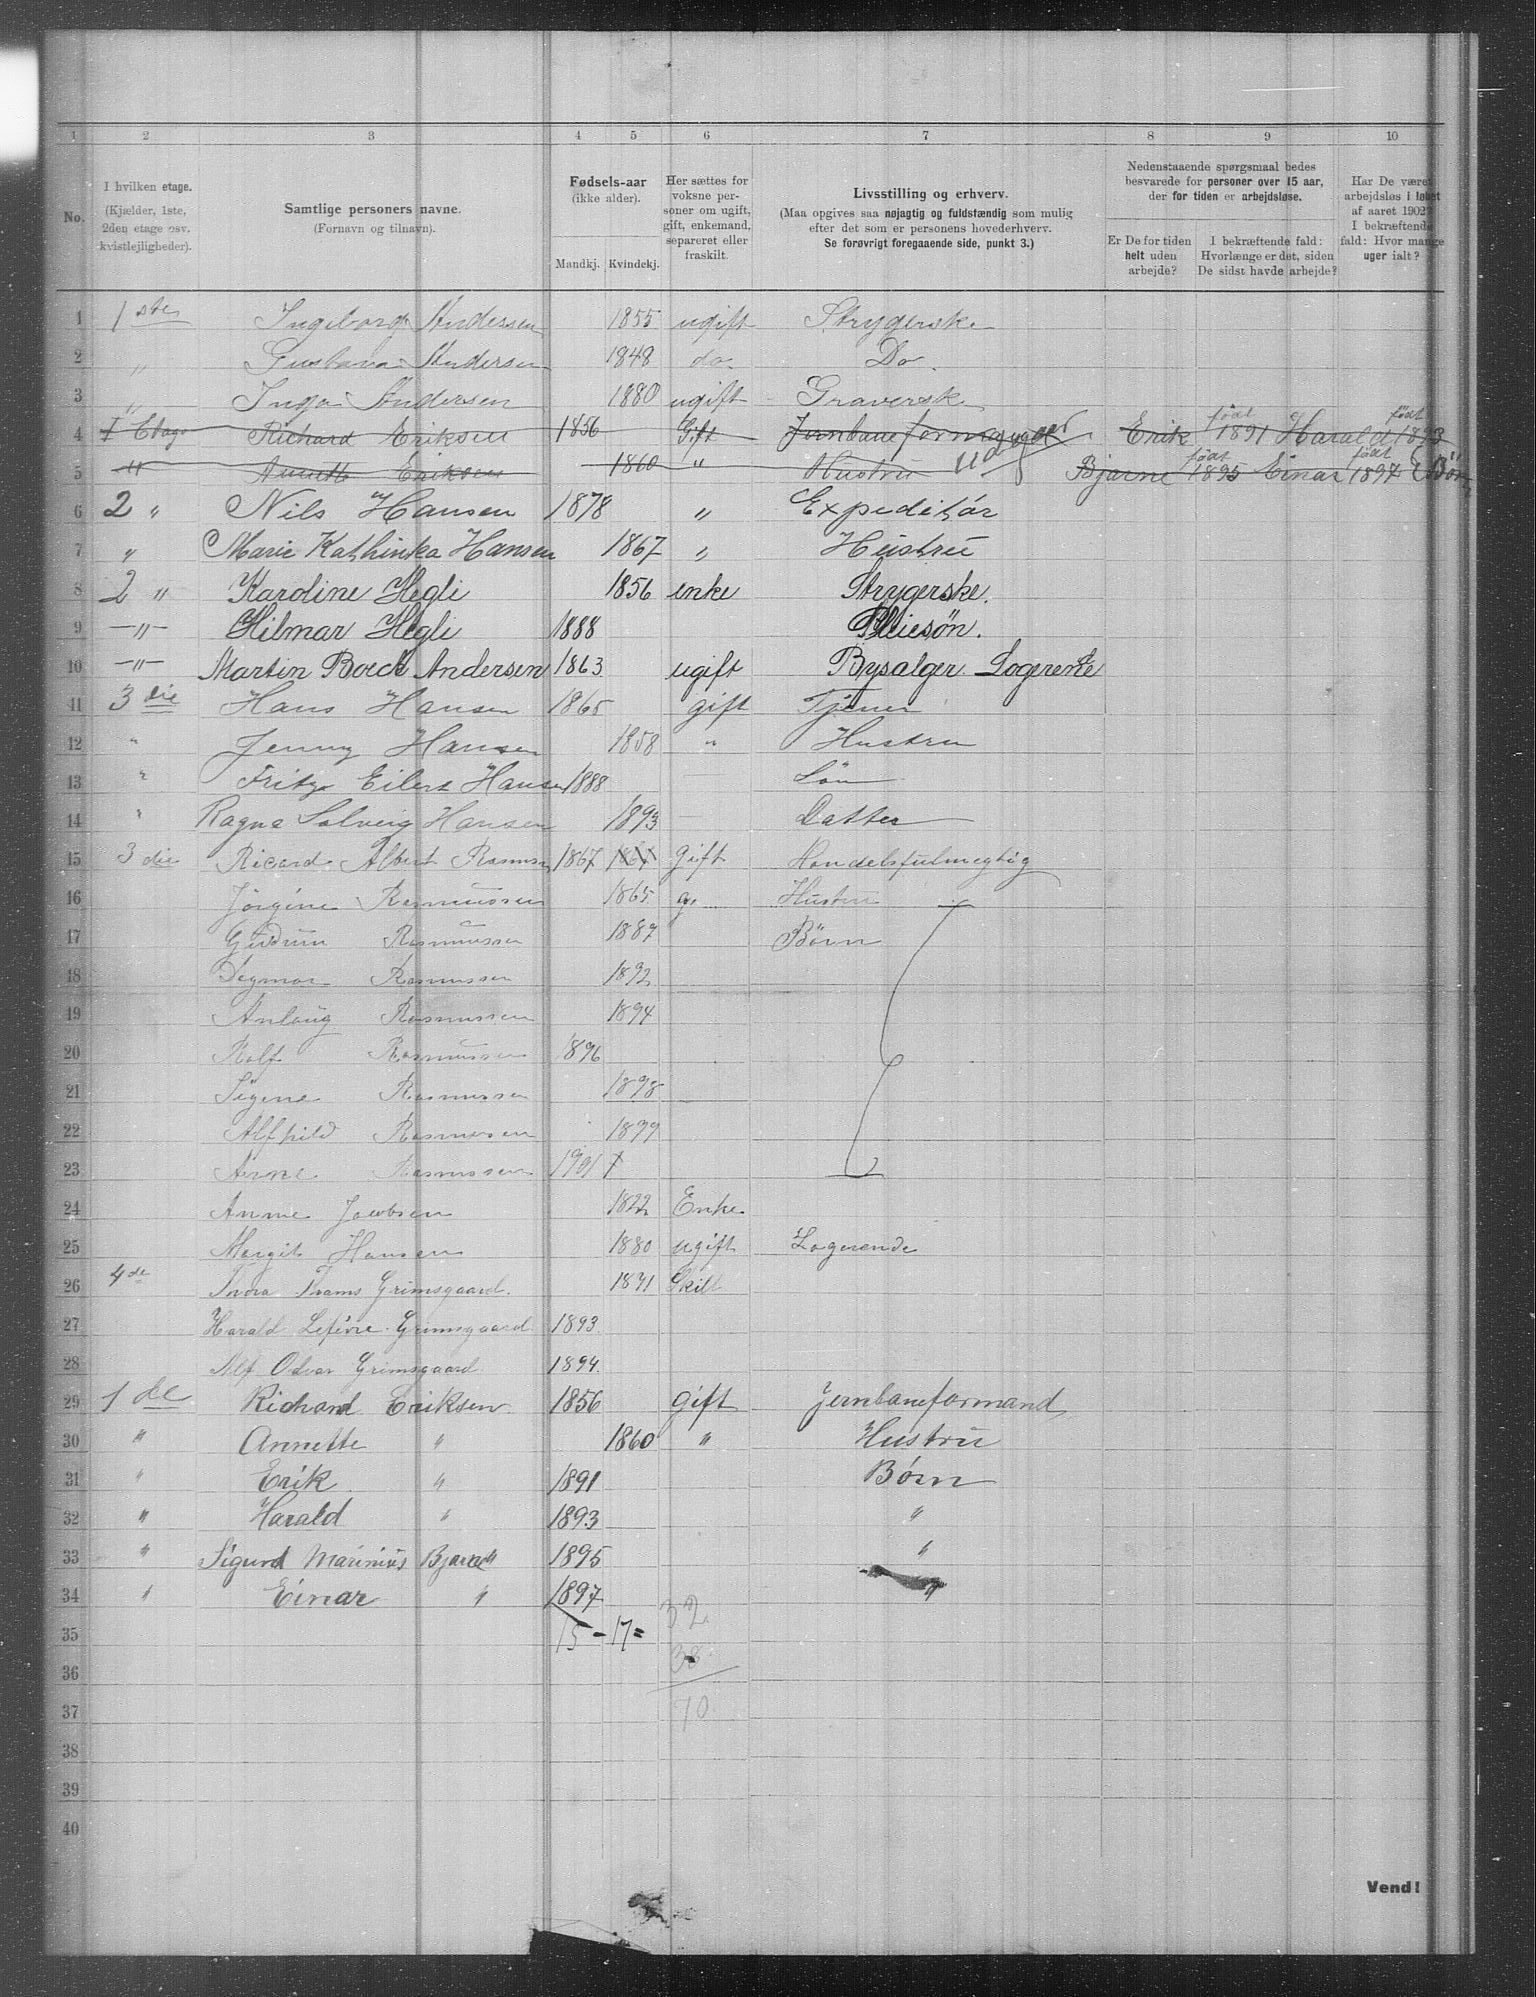 1 2 3 4 5 6 7 8 9 10
No.
I hvilken etage.
(Kjælder, 1ste,
2den etage osv.
kvistlejligheder).
Samtlige personers navne.
(Fornavn og tilnavn).
Fødsels-aar
(ikke alder).
Mandkj. Kvindekj.
Her sættes for
voksne per-
soner om ugift,
gift, enkemand,
separeret eller
fraskilt.
Livsstilling og erhverv.
(Maa opgives saa nøjagtig og fuldstændig som mulig
efter det som er personens hovederhverv.
Se forøvrigt foregaaende side, punkt 3.)
Nedenstaaende spørgsmaal bedes
besvarede for personer over 15 aar,
der for tiden er arbejdsløse.
Er De for tiden
helt uden
arbejde?
I bekræftende fald:
Hvorlænge er det, siden
De sidst havde arbejde?
Har De været
arbejdsløs i løbet
af aaret 1902?
I bekræftende
fald: Hvor mange
uger ialt?
1 1ste Ingeborg Andersen 1855 ugift Strygerske
2 " Gustava Andersen 1848 do. Do.
3 " Inga Andersen 1880 ugift Graverske
4 I Etage Richard Eriksen 1856 Gift Erik født 1891 Harald født 1893
5 " Annette Eriksen 1860 " Hustru Bjarne født 1895 Einar født 1897 Børn
6 2 " Nils Hansen 1878 " Expeditör
7 " Marie Kathinka Hansen 1867 " Hustru
8 2 " Karoline Hegli 1856 enke Strygerske.
9 -"- Hilmar Hegli 1888 Pleiesøn.
10 -"- Martin Boeck Andersen 1863 ugift Bysalger Logerende
11 3die Hans Hansen 1865 gift Tjener
12 " Jenny Hansen 1858 " Hustru
13 " Fritz Eilert Hansen 1888 Sön
14 " Ragna Solveig Hansen 1893 Datter
15 3die Ricard Albert Rasmussen 1867 1867 Gift Handelsfulmegtig
16 Jörgine Rasmussen 1865 g. Hustru
17 Gudrun Rasmussen 1887 Börn
18 Dagmar Rasmussen 1892
19 Anlaug Rasmussen 1894
20 Rolf Rasmussen 1896
21 Signe Rasmussen 1898
22 Alfhild Rasmussen 1899
23 Arne Rasmussen 1901
24 Anne Jacobsen 1822 Enke
25 Margit Hansen 1880 ugift Logerende
26 4de Thora Grimsgaard. 1871 Skilt
27 Harald Lefévre Grimsgaard 1893
28 Alf Odvar Grimsgaard 1894.
29 1 de Richard Eriksen 1856 gift Jernbaneformand
30 " Annette " 1860 " Hustru
31 " Erik " 1891 Børn
32 " Harald " 1893 "
33 " Sigurd Marinius Bjarne " 1895 "
34 " Einar " 1897 "
35 15 - 17 = 32
36 38
37 70
38
39
40
Vend!